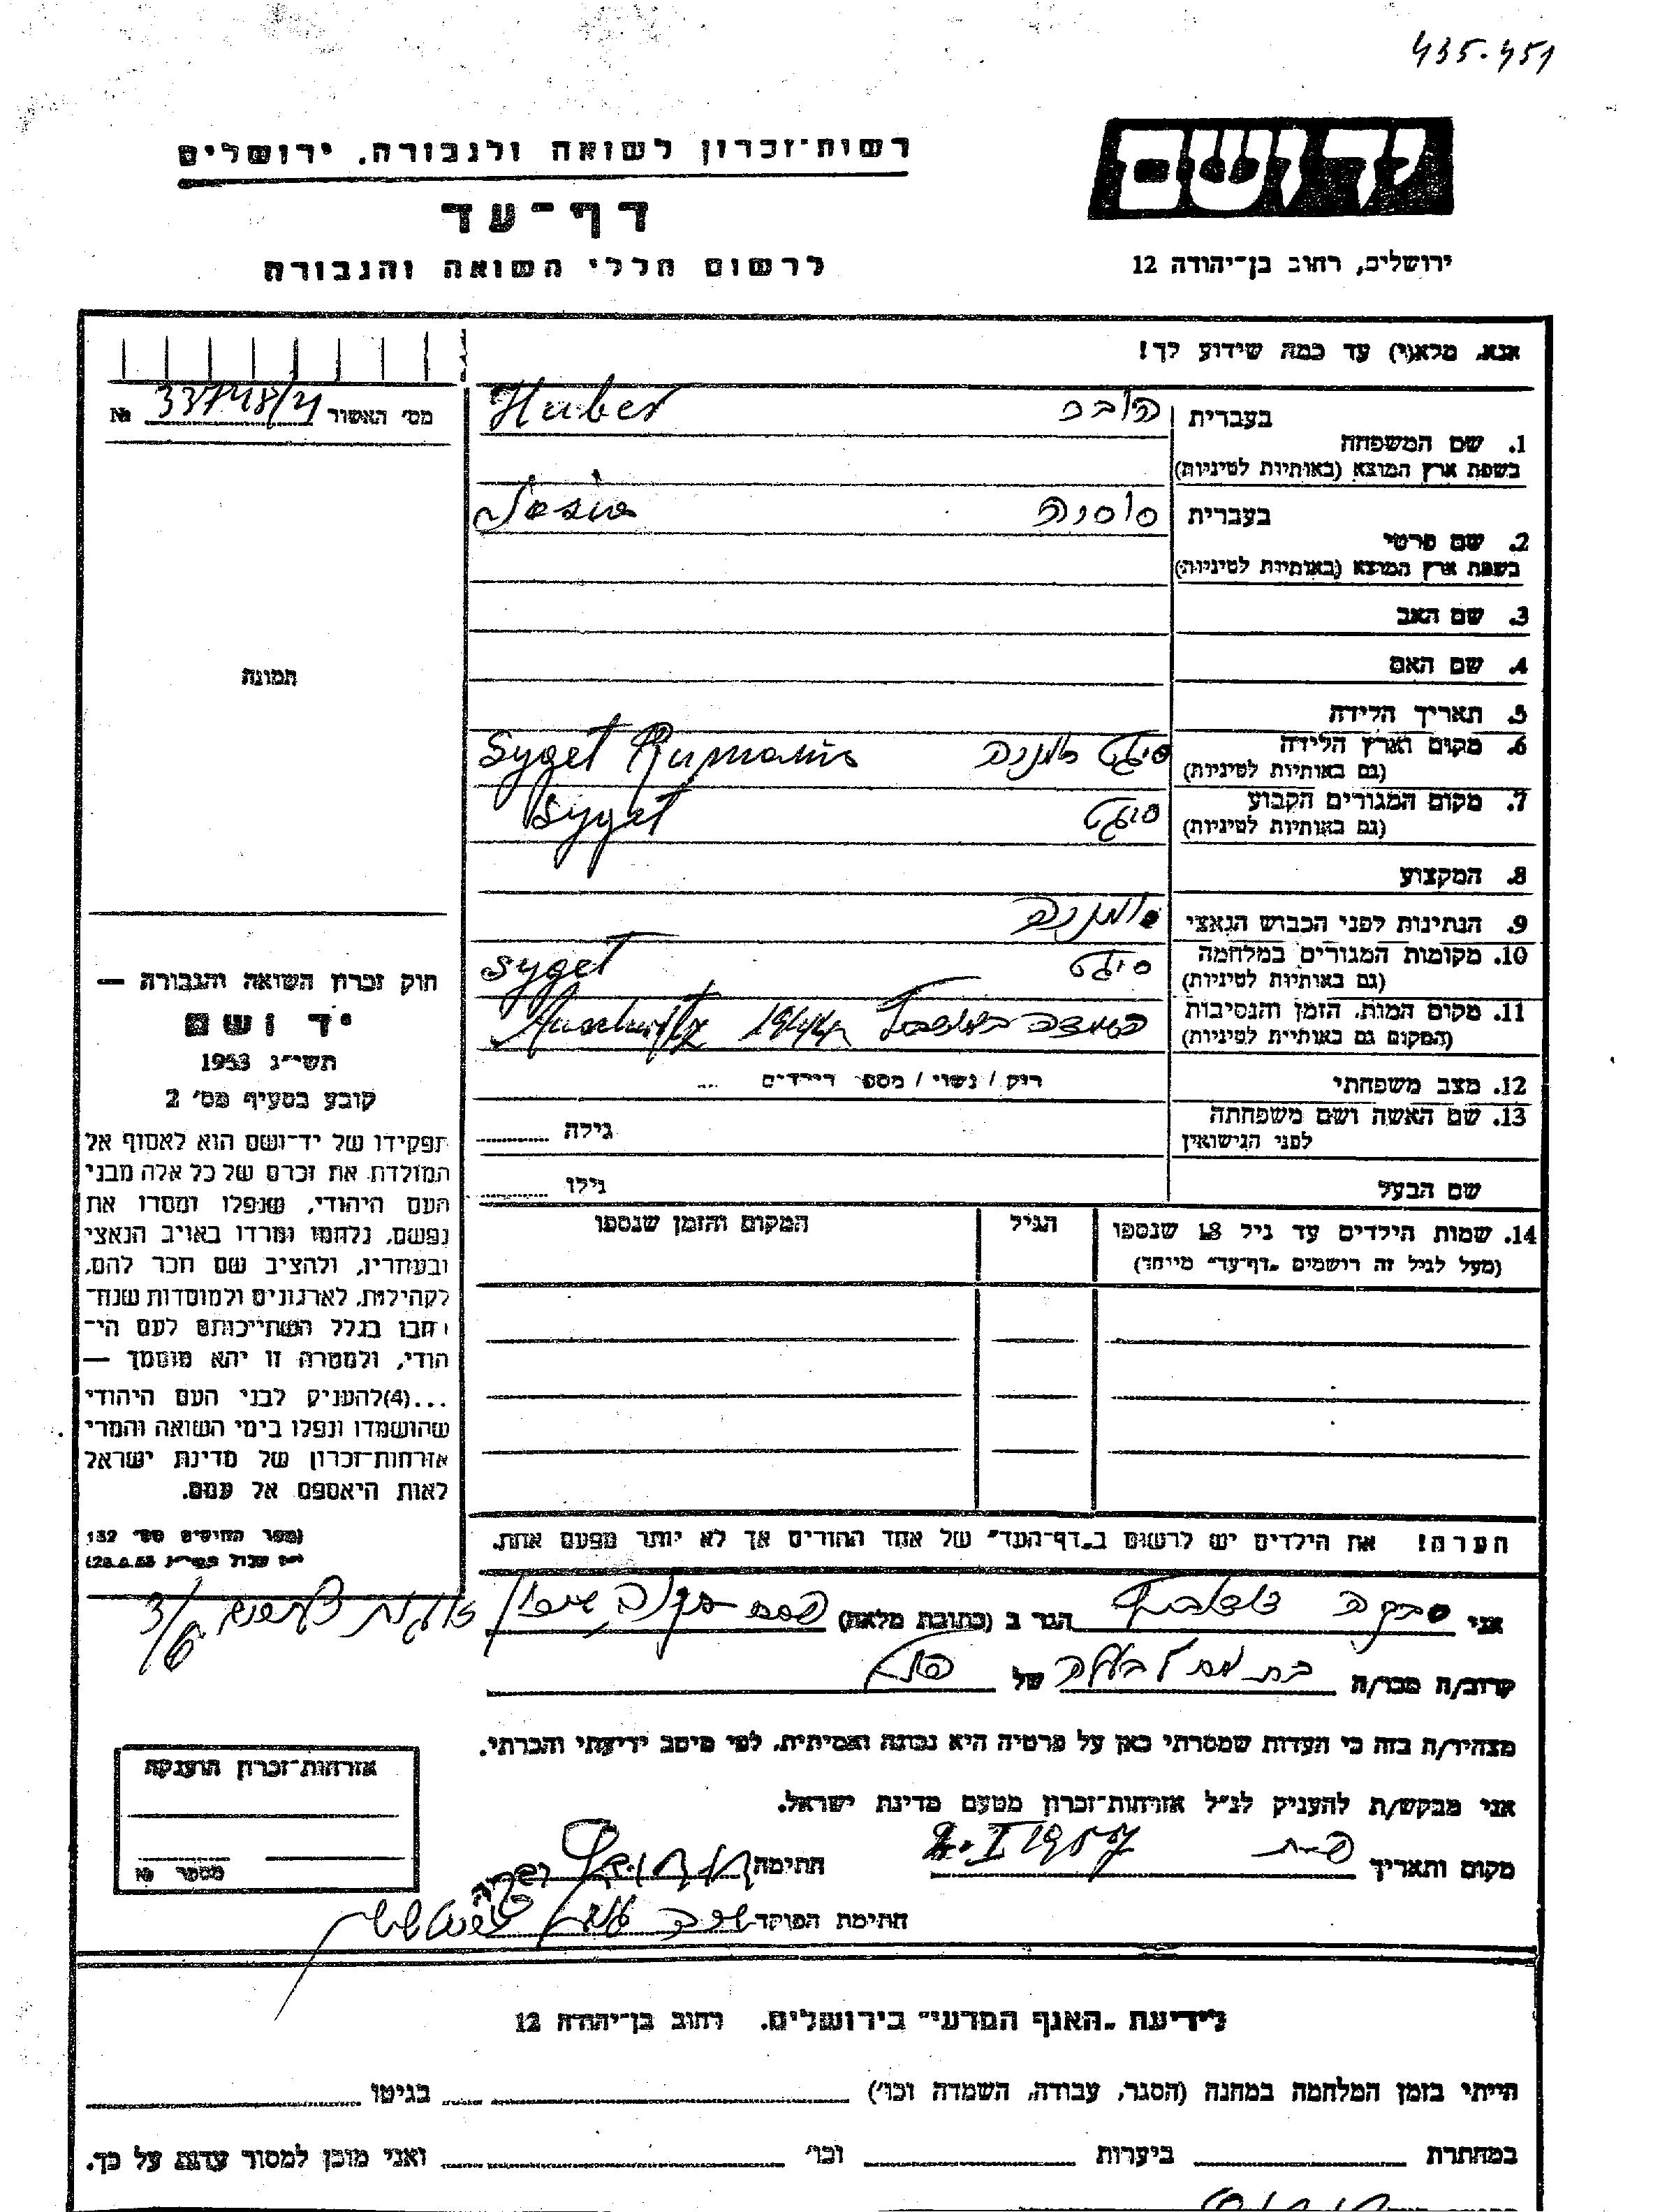 435-451
יד ושם
רשות־זכרון לשואה ולגבורה, ירושלים
דף־עד
לרשום חללי השואה והגבורה
ירושלים, רחוב בן־יהודה 12
אנא, מלא(י) עד כמה שידוע לך!
מס׳ האשור №
1. שם המשפחה בעברית הובר Huber
בשפת ארץ המוצא (באותיות לטיניות)
2. שם פרטי בעברית
בשפת ארץ המוצא (באותיות לטיניות)
3. שם האב
4. שם האם
5. תאריך הלידה
6. מקום וארץ הלידה סיגט רומניה Syget Rumania
(גם באותיות לטיניות)
7. מקום המגורים הקבוע סיגט Syget
(גם באותיות לטיניות)
8. המקצוע
9. הנתינות לפני הכבוש הנאצי רומניה
10. מקומות המגורים במלחמה סיגט Syget
(גם באותיות לטיניות)
11. מקום המות, הזמן והנסיבות 1944 Auschwitz
(המקום גם באותיות לטיניות)
12. מצב משפחתי רוק / נשוי / מספר הילדים ...
13. שם האשה ושם משפחתה גילה
לפני הנישואין
שם הבעל גילו
14. שמות הילדים עד גיל 18 שנספו הגיל המקום והזמן שנספו
(מעל לגיל זה רושמים "דף־עד" מיוחד)
הערה! את הילדים יש לרשום ב"דף־העד" של אחד ההורים אך לא יותר מפעם אחת.
תמונה
חוק זכרון השואה והגבורה —
יד ושם
תשי״ג 1953
קובע בסעיף מס׳ 2
תפקידו של יד־ושם הוא לאסוף אל
המולדת את זכרם של כל אלה מבני
העם היהודי, שנפלו ומסרו את
נפשם, נלחמו ומרדו באויב הנאצי
ובעוזריו, ולהציב שם וזכר להם,
לקהילות, לארגונים ולמוסדות שנח־
רבו בגלל השתייכותם לעם הי־
הודי, ולמטרה זו יהא מוסמך —
...(4) להעניק לבני העם היהודי
שהושמדו ונפלו בימי השואה והמרי
אזרחות־זכרון של מדינת ישראל
לאות היאספם אל עמם.
(ספר החוקים מס׳ 132
אני רבקה הגר ב (כתובת מלאה)
קרוב/ה מכר/ה של
מצהיר/ה בזה כי העדות שמסרתי כאן על פרטיה היא נכונה ואמיתית, לפי מיטב ידיעתי והכרתי.
אני מבקש/ת להעניק לנ״ל אזרחות־זכרון מטעם מדינת ישראל.
מקום ותאריך 2.I 1957 חתימה
חתימת הפוקד
אזרחות־זכרון הוענקה
מספר №
לידיעת "האגף המדעי" בירושלים. רחוב בן־יהודה 12
הייתי בזמן המלחמה במחנה (הסגר, עבודה, השמדה וכו׳) בגיטו
במחתרת ביערות וכו׳ ואני מוכן למסור עדות על כך.